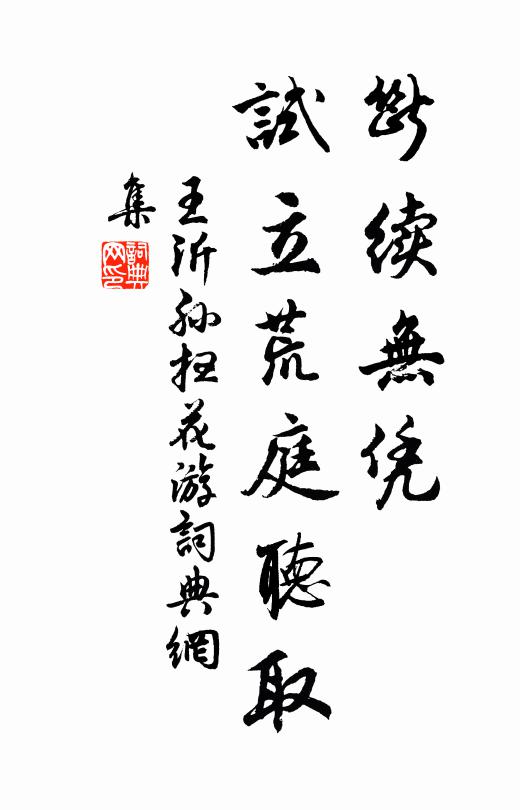 斷續無凭
試立荒庭聽取
王沂孙扫花游詞典網
集
詞典网印